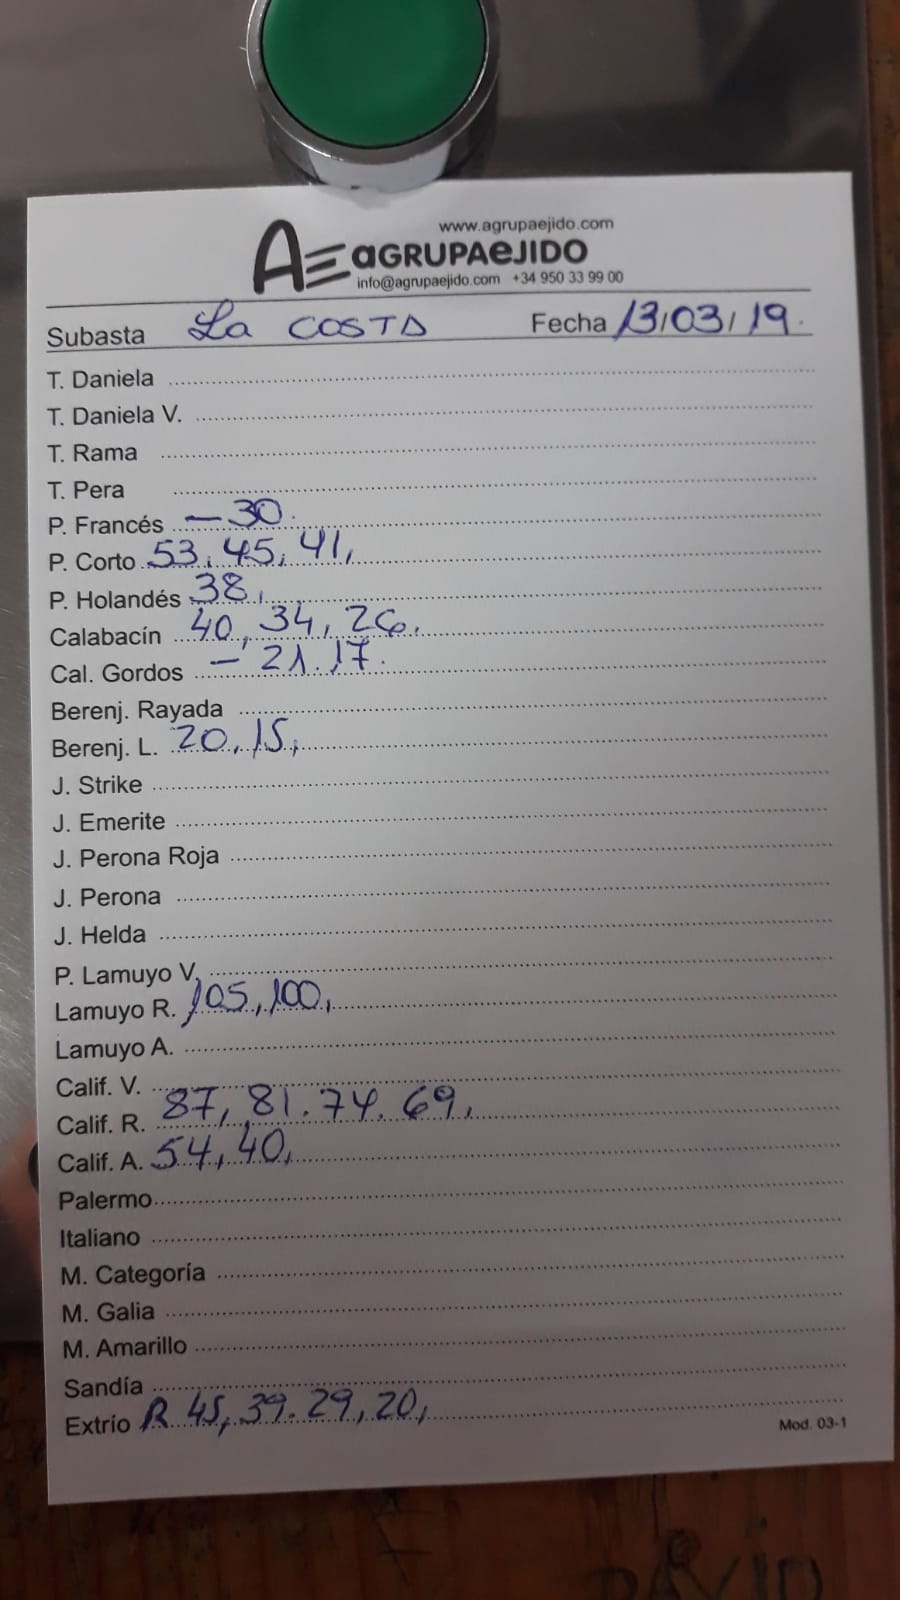 www.agrupaejido.com
AE aGRUPAeJIDO
info@agrupaejido.com +34 950 33 99 00
Subasta La COSTA Fecha 13/03/19.
T. Daniela
T. Daniela V.
T. Rama
T. Pera
P. Francés — 30.
P. Corto 53, 45, 41,
P. Holandés 38,
Calabacín 40, 34, 26,
Cal. Gordos — 21. 17.
Berenj. Rayada
Berenj. L. 20, 15,
J. Strike
J. Emerite
J. Perona Roja
J. Perona
J. Helda
P. Lamuyo V.
Lamuyo R. 105, 100,
Lamuyo A.
Calif. V.
Calif. R. 87, 81. 74. 69,
Calif. A. 54, 40,
Palermo
Italiano
M. Categoría
M. Galia
M. Amarillo
Sandía
Extrío R 45, 39. 29, 20,
Mod. 03-1
DAVID